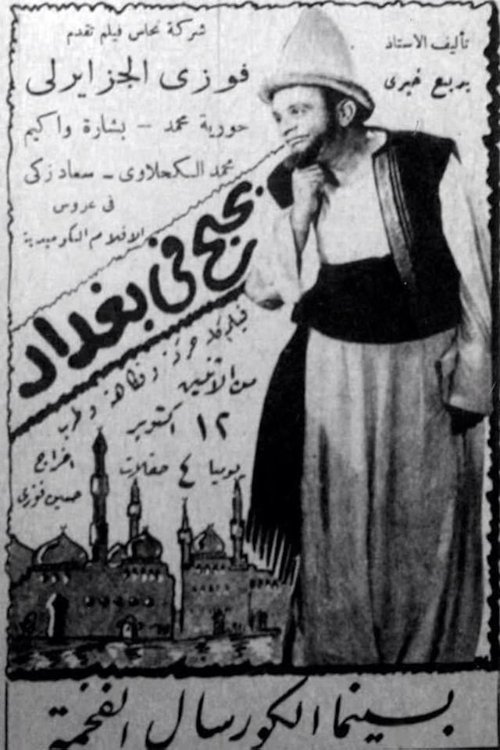 شركة نحاس فيلم تقدم
فوزى الجزايرلى
حورية محمد - بشارة واكيم
محمد الكحلاوى - سعاد زكى
فى عروس
الافلام الكوميدية
تأليف الاستاذ
بديع خيرى
بحبح فى بغداد
فيلم كله وفكاهة وطرب
من الأثنين
١٢ أكتوبر
يوميا ٤ حفلات
اخراج
حسين فوزى
بسينما الكورسال الفخمة